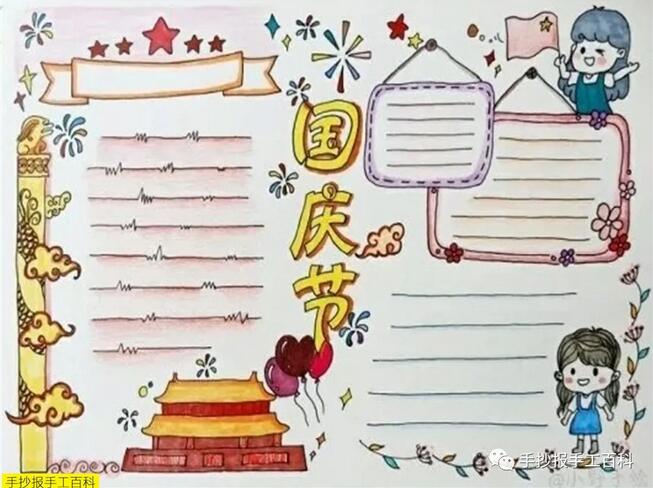 国庆节
手抄报手工百科
手抄报手工百科